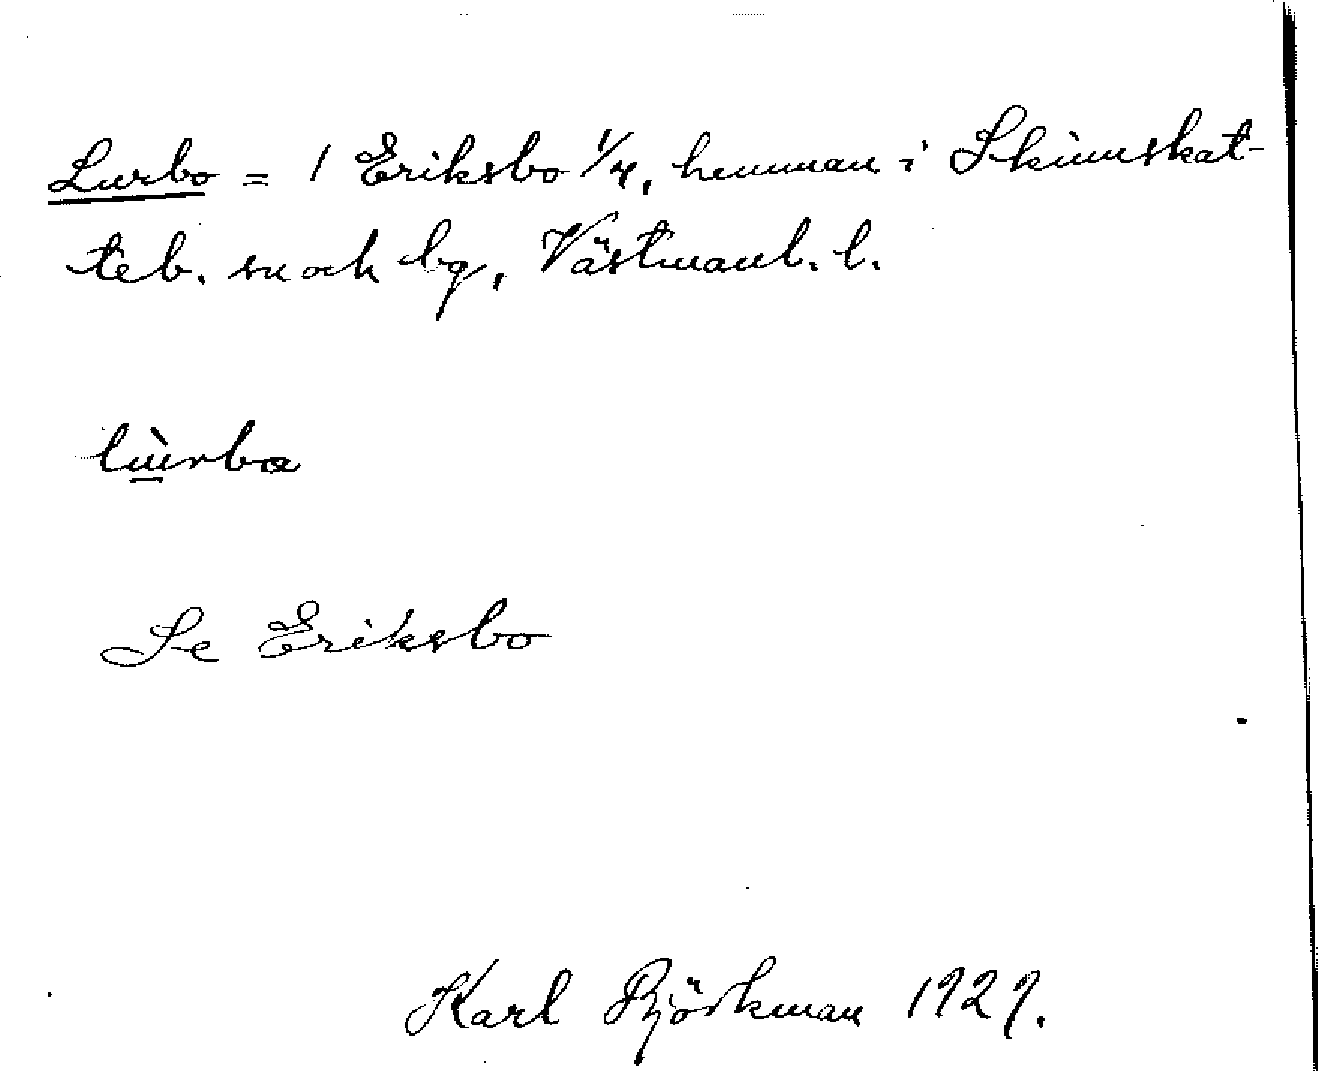 Lurbo = 1 Eriksbo 1/4, hemman i Skinnskat-
teb. sn och bg, Västmanl. l.
lùrbo
Se Eriksbo
Karl Björkman 1929.